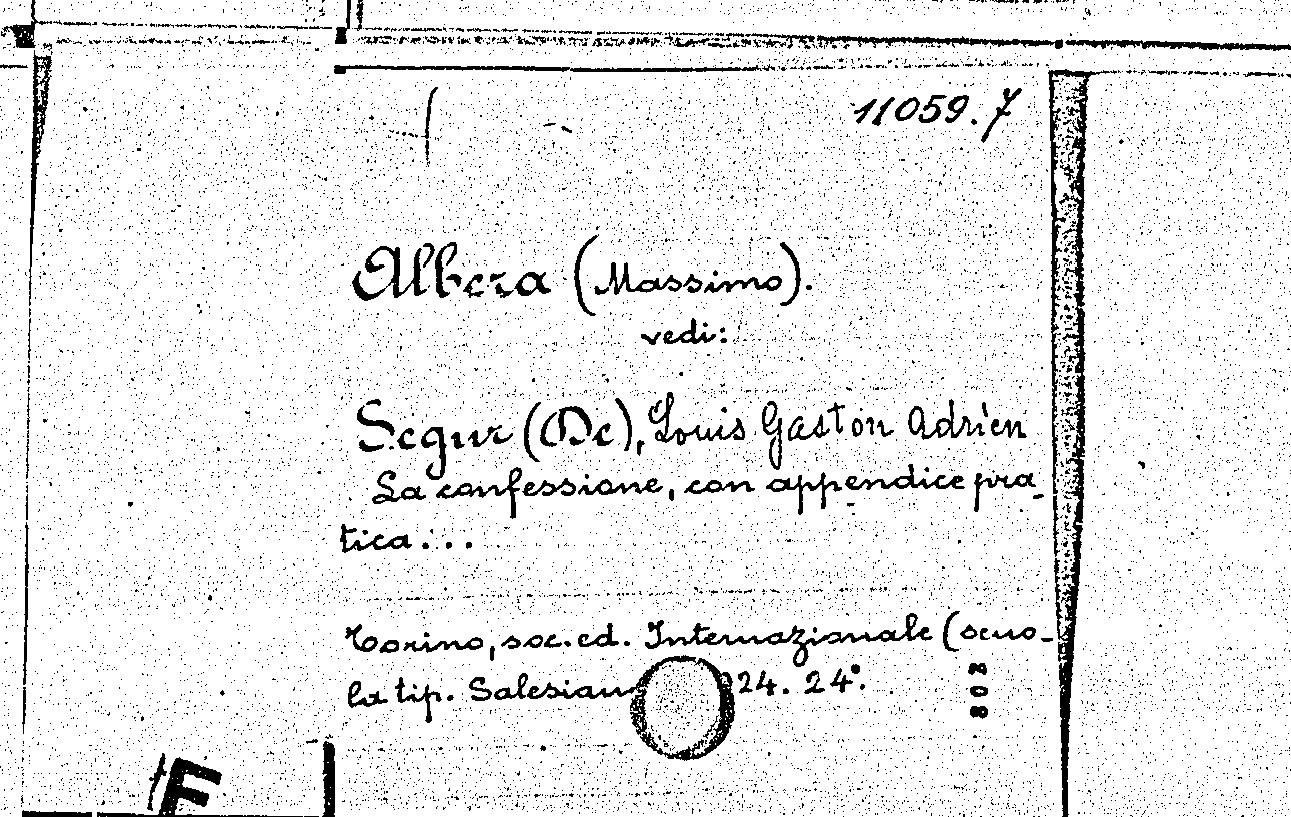 11059.7
Albera (Massimo).
vedi:
Segur (De), Louis Gaston Adrien
La confessione, con appendice pra-
tica...
Torino, soc. ed. Internazionale (scuo-
la tip. Salesian 924. 24°.
802
F